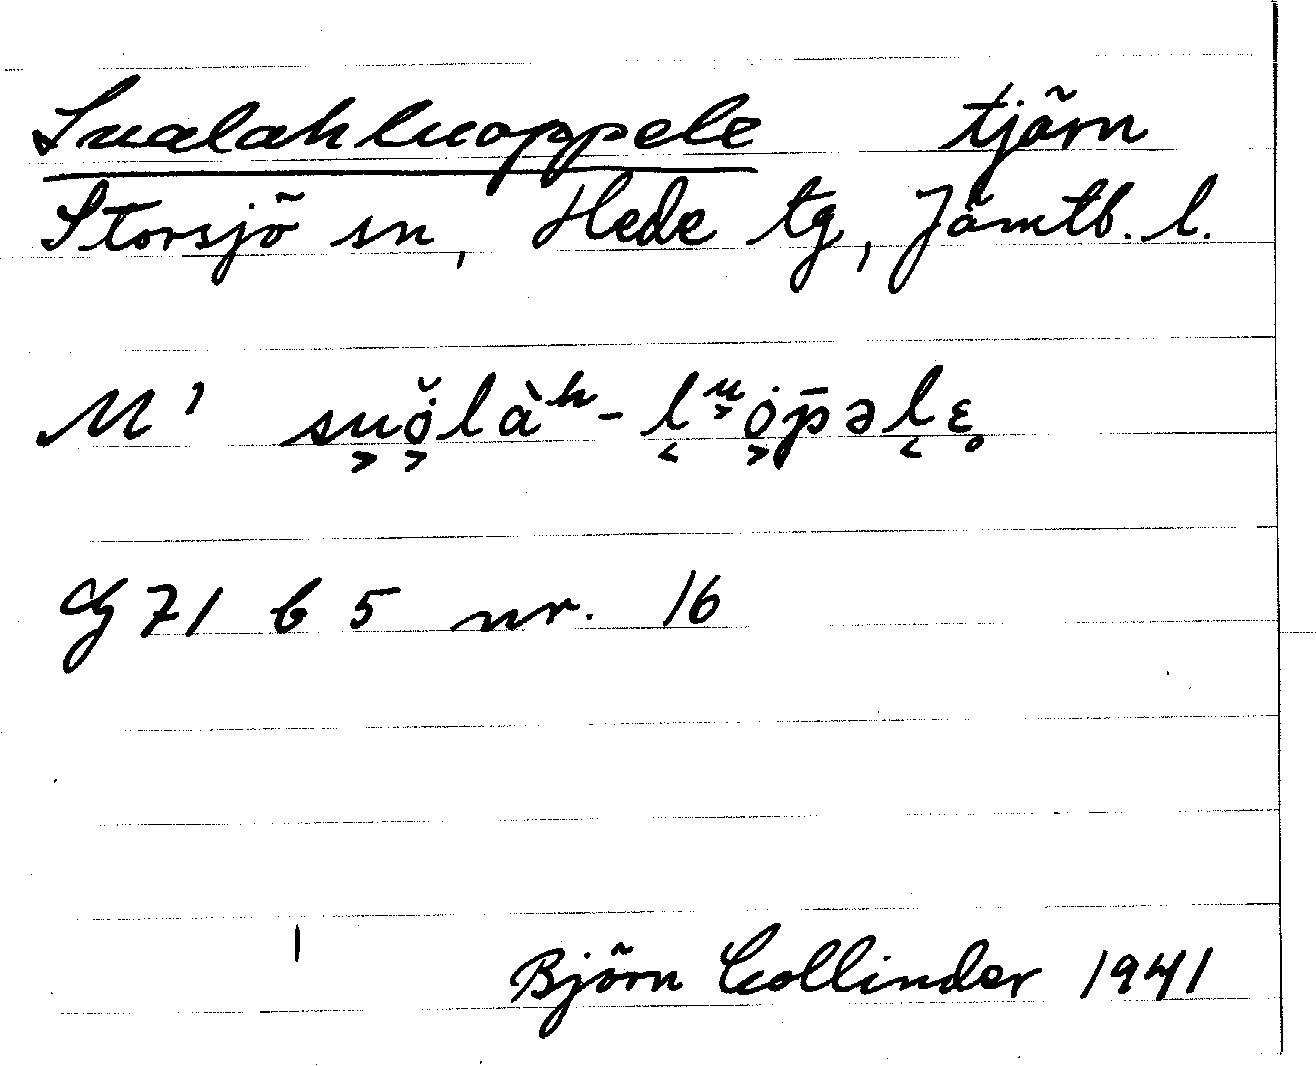 Sualahluoppele tjärn
Storsjö sn, Hede tg, Jämtl. l.
M' su͔ǒ̤͔làʰ-l͔ᵘ͔ȯ͔p̄əl͔ε̥
G 71 b 5 nr. 16
Björn Collinder 1941